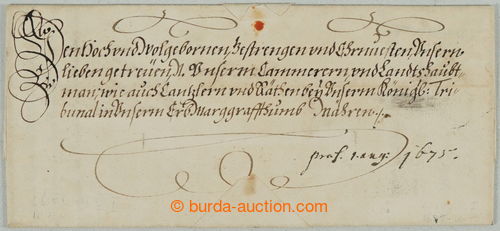 Den Hoch vnd Wolgebornen, Gestrengen vnd Ehrnuesten, Vnsern
lieben getreüen, N. Vnserm Cammerern, vnd Landtshaubt-
man, wie auch Cantzlern vnd Räthen beÿ Vnserm Königl: Tri-
bunal in Vnserm Erb Marggraffthumb Mähren.
præs. 1. aug: 1675.
burda-auction.com